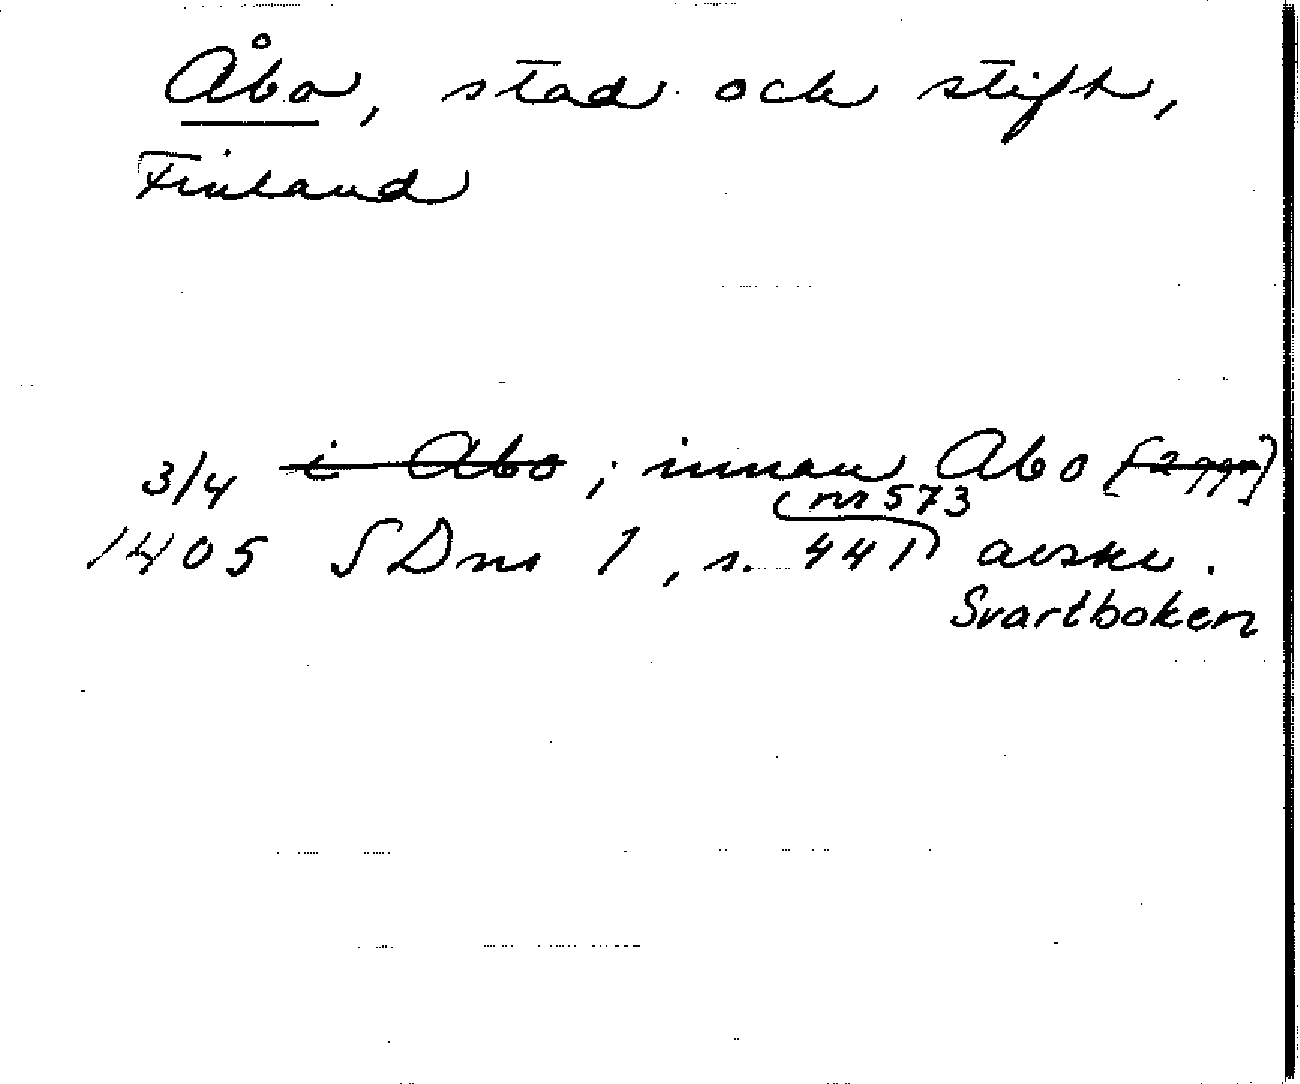 Åbo, stad och stift,
Finland
3/4 i Abo; innan Abo (2 ggr)
nr 573
1405 SDns 1, s. 441 avskr.
Svartboken